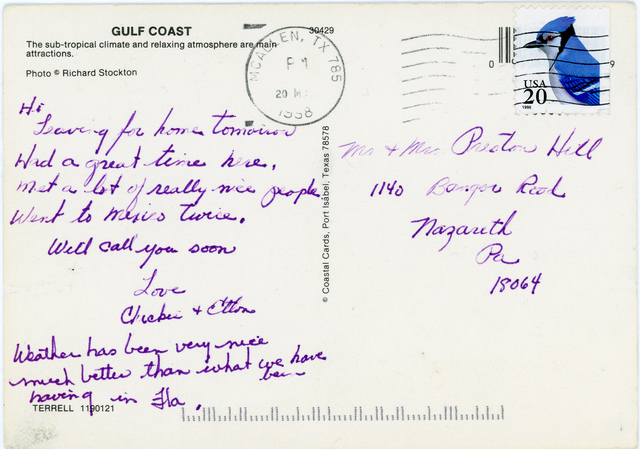 GULF COAST
The sub-tropical climate and relaxing atmosphere are main
attractions.
Photo © Richard Stockton
30429
MCALLEN, TX 785
PM
20
1998
USA
20
1996
0
9
Hi
Leaving for home tomorrow
Had a great time here.
Met a lot of really nice people
Went to Mexico twice.
Will call you soon
Love
Chickie +
Weather has been very nice
much better than what we have
been
having in Fla.
TERRELL 1190121
© Coastal Cards, Port Isabel, Texas 78578
Mr + Mrs Preston Hill
1140 Bangor Road
Nazareth
Pa
18064